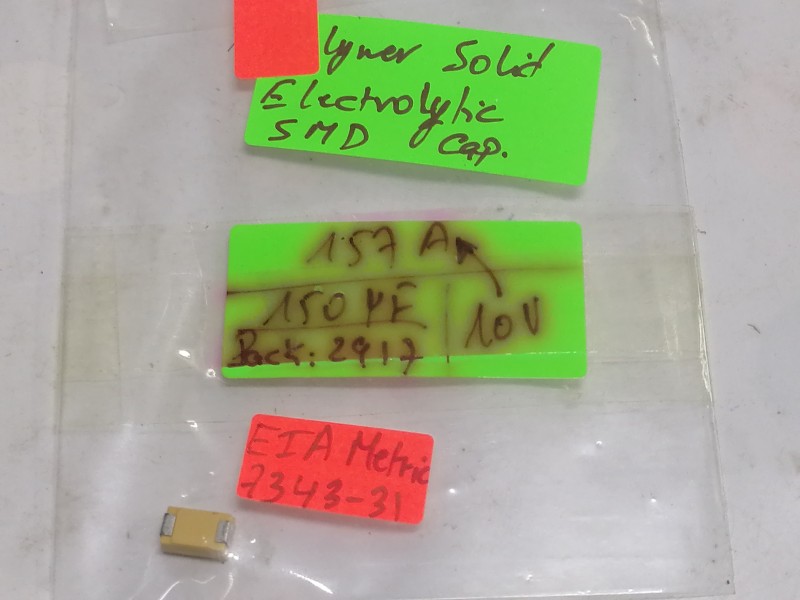 lymer Solid
Electrolytic
SMD Cap.
157 A
150 µF
10V
Pack: 2917
EIA Metric
7343-31